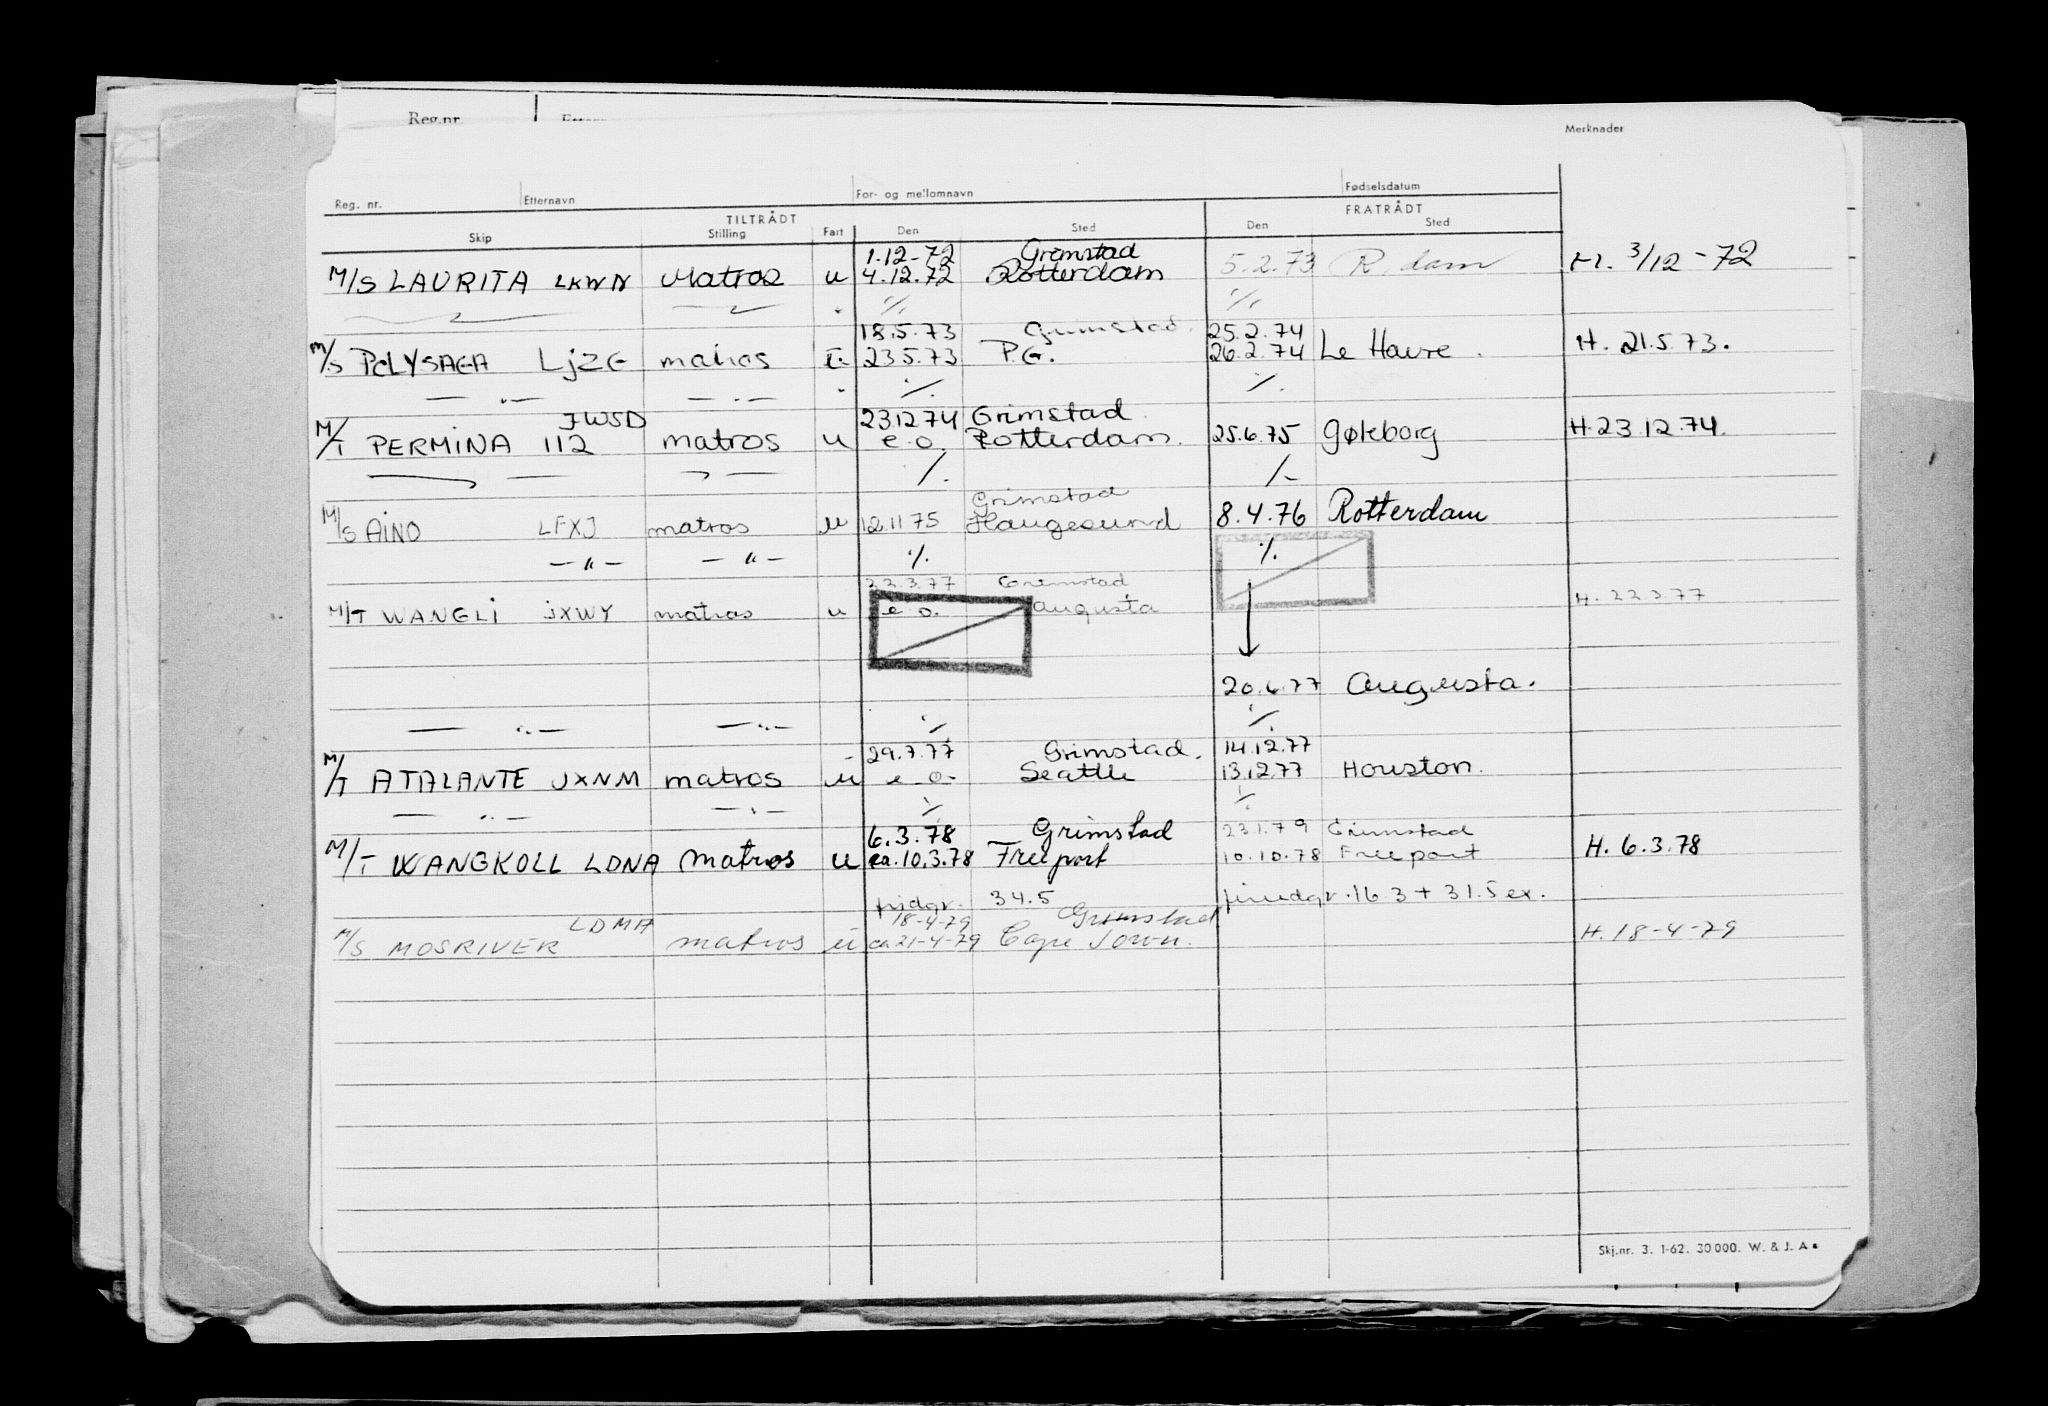 Reg.nr.
Merknader
Reg. nr. Etternavn For- og mellomnavn Fødselsdatum
TILTRÅDT FRATRÅDT
Skip Stilling Fart Den Sted Den Sted
1.12-72 Grimstad
M/S LAURITA LKWN Matros u 4.12.72 Rotterdam 5.2.73 R.dam H. 3/12-72
./. ./.
18.5.73 Grimstad. 25.2.74
M/S POLYSAGA LJZE matros u 23.5.73 P.G. 26.2.74 Le Havre. H. 21.5.73.
— " — — " — ./. ./.
JWSD 23.12.74 Grimstad
M/T PERMINA 112 matros u e.o. Rotterdam. 25.6.75 Gøteborg H.23.12.74.
./. ./.
Grimstad
M/S AINO LFXJ matros u 12.11.75 Haugesund 8.4.76 Rotterdam
— " — — " — ./. ./.
22.3.77 Grimstad
M/T WANGLI JXWY matros u e.o. Augusta H. 22.3.77
20.6.77 Augusta.
— " — — " — ./. ./.
29.7.77 Grimstad. 14.12.77
M/T ATALANTE JXNM matros u e.o. Seattle 13.12.77 Houston.
— " — — " — ./. ./.
6.3.78 Grimstad 23.1.79 Grimstad
M/T WANGKOLL LDNA Matros u ca.10.3.78 Freeport 10.10.78 Freeport H. 6.3.78
34.5 16.3 + 31.5 ex.
LDMA 18-4-79 Grimstad
M/S MOSRIVER matros u ca 21-4-79 Cape Town. H. 18-4-79
Skj.nr. 3. 1-62. 30 000. W. & J. A